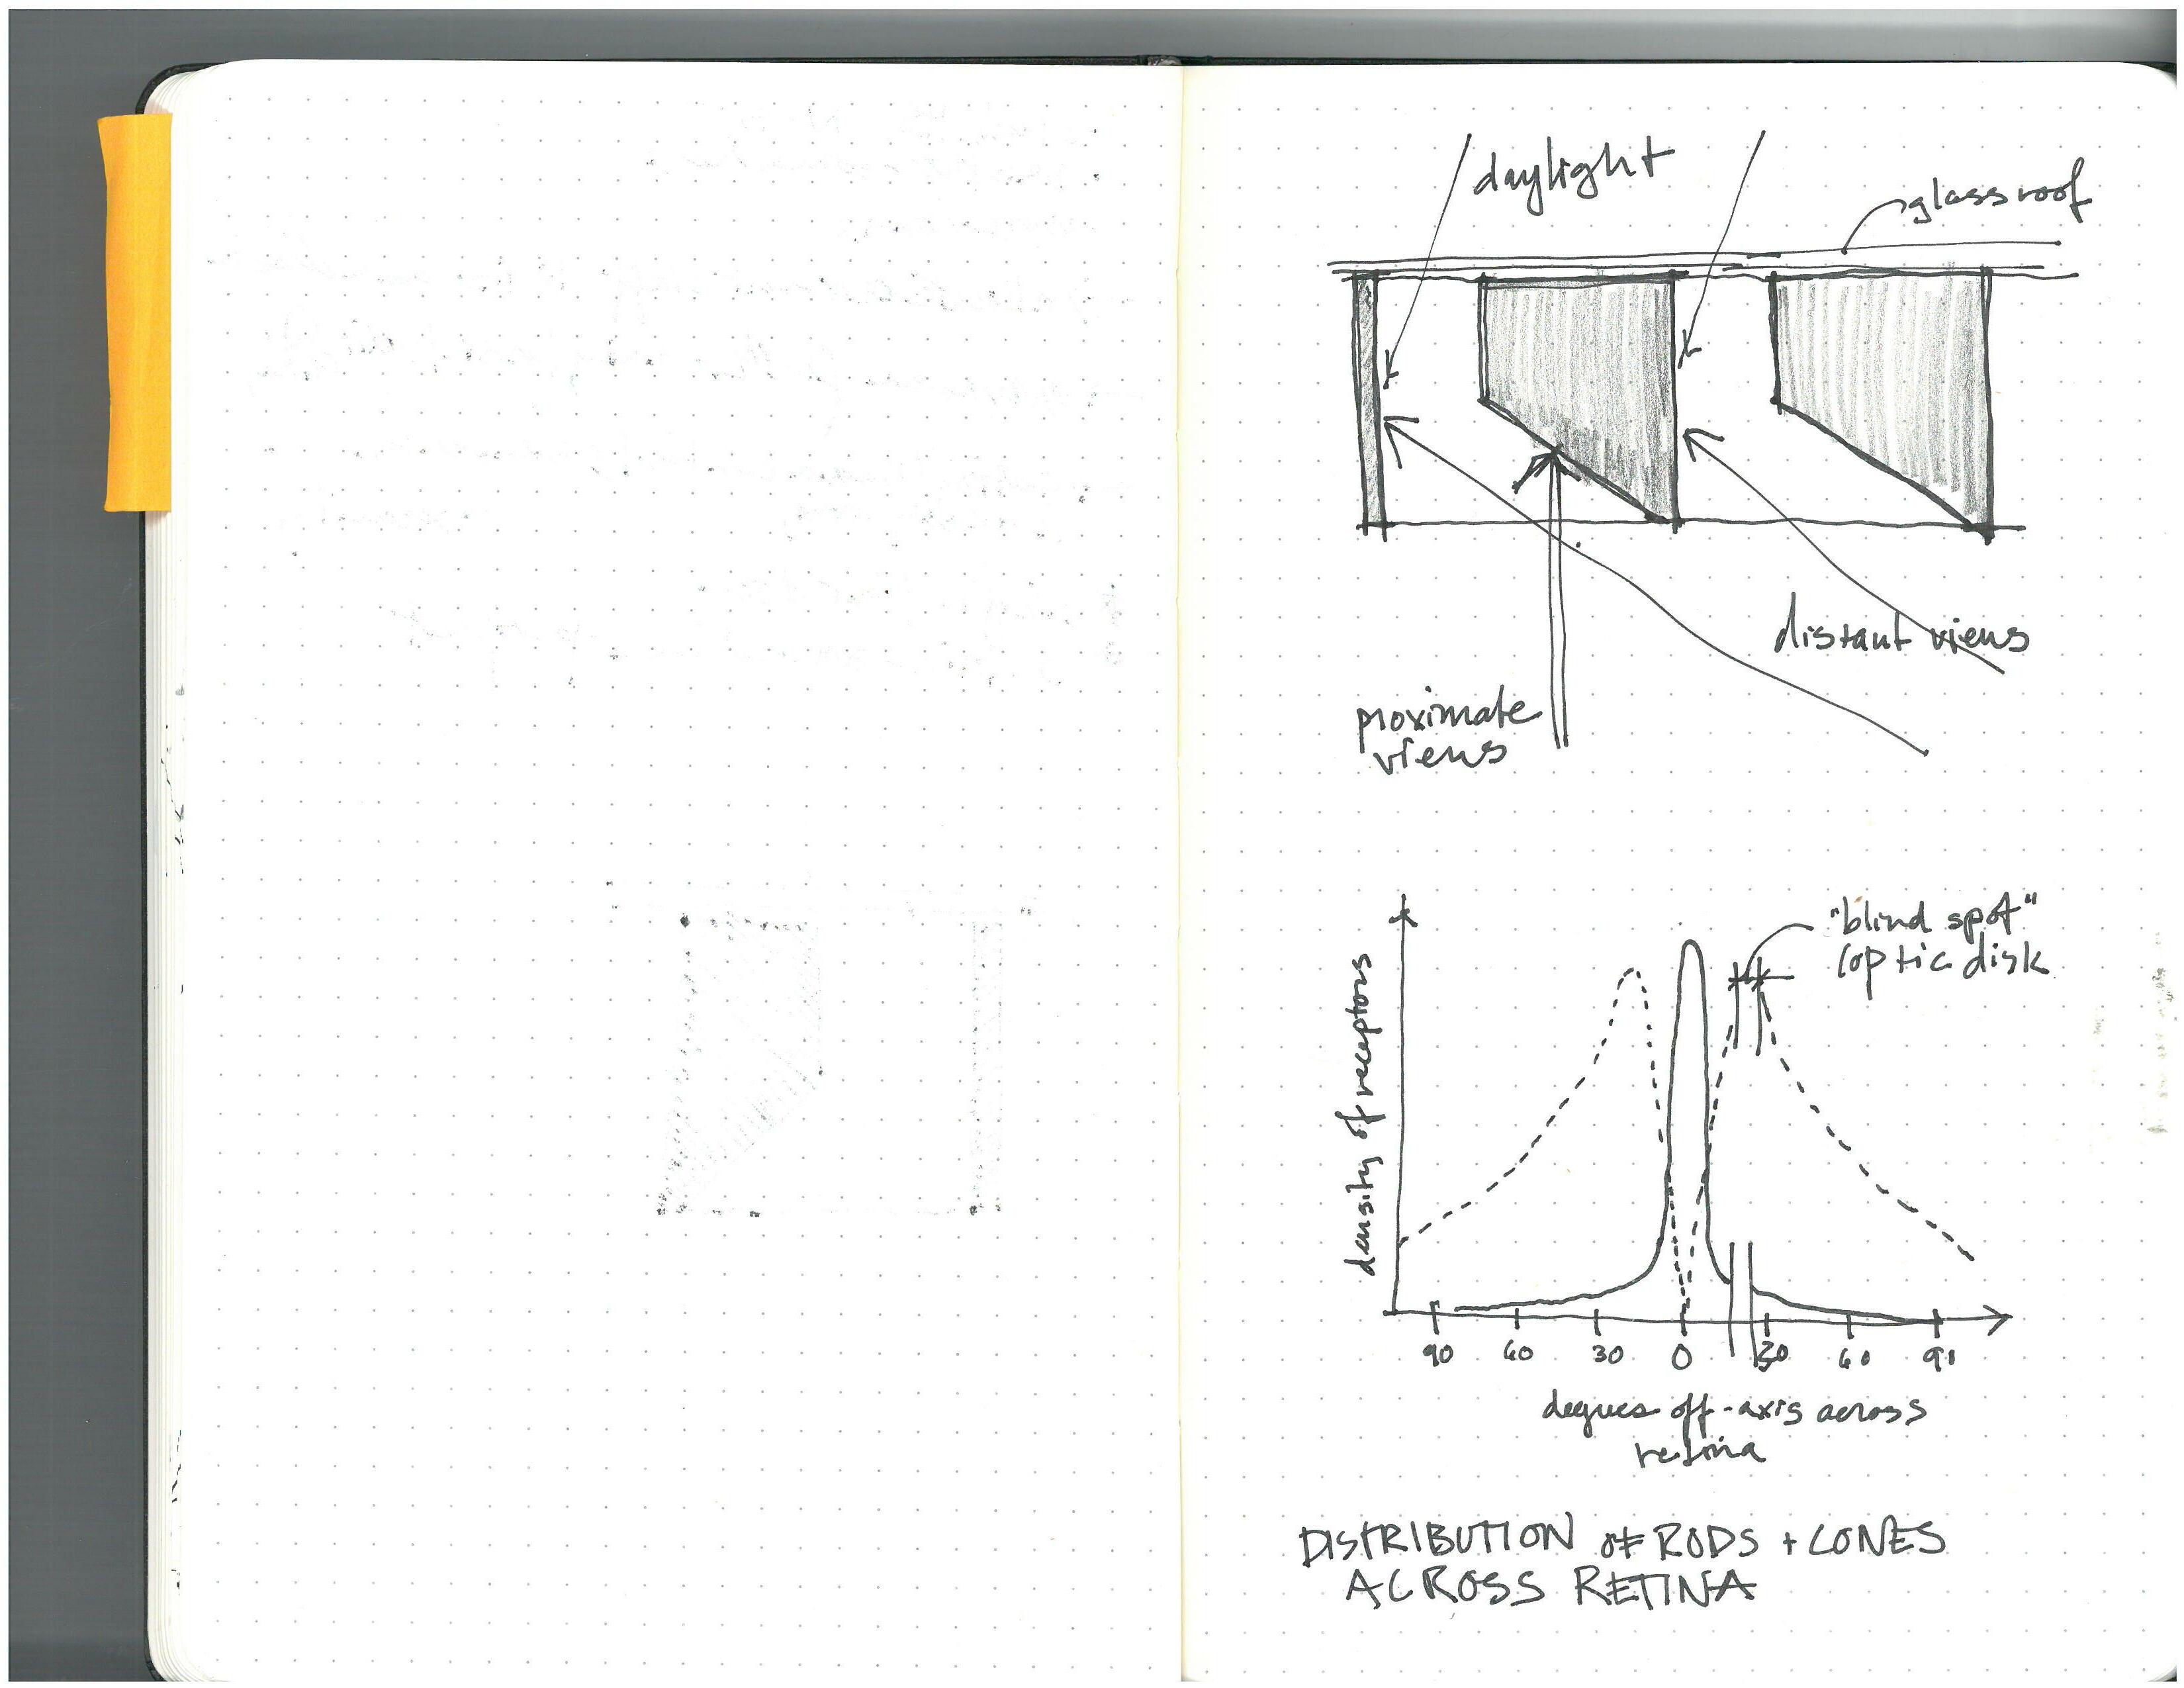 daylight
glass roof
distant views
proximate
views
"blind spot"
(optic disk
density of receptors
90 60 30 0 30 60 90
degrees off-axis across
retina
DISTRIBUTION OF RODS + CONES
ACROSS RETINA